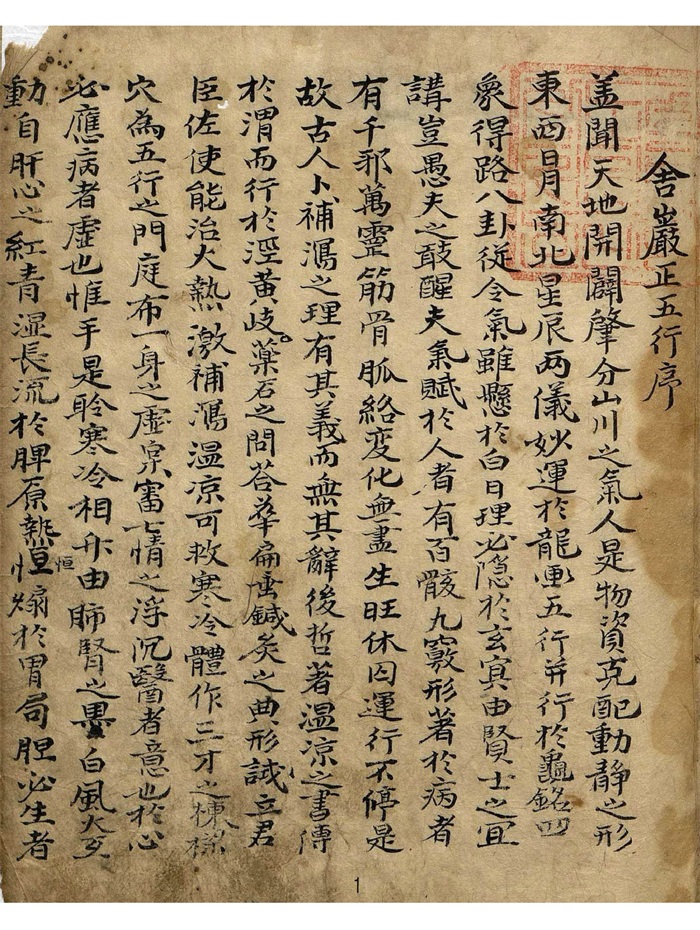 舍巖正五行序
盖聞天地開闢肇分山川之氣人是物資克配動靜之形
東西日月南北星辰两儀妙運於龍圖五行并行於龜銘四
象得路八卦從令氣雖懸於白日理必隐於玄冥由賢士之宜
講豈愚夫之敢醒夫氣賦於人者有百骸九竅形著於病者
有千邪萬靈筋骨脈絡变化無盡生旺休囚運行不停是
故古人卜補瀉之理有其義而無其辭後哲著温凉之書傳
於渭而行於涇黃岐藥石之問荅華扁鍼灸之典形試立君
臣佐使能治大熱激補瀉温凉可救寒冷體作三才之棟樑
穴為五行之門庭布一身之虛实審七情之浮沉醫者意也於心
必應病者虛也惟手是聆寒冷相升由肺腎之黑白風火交
動自肝心之紅青濕長流於脾原熱恒煽於胃局胆必生者
恒
1